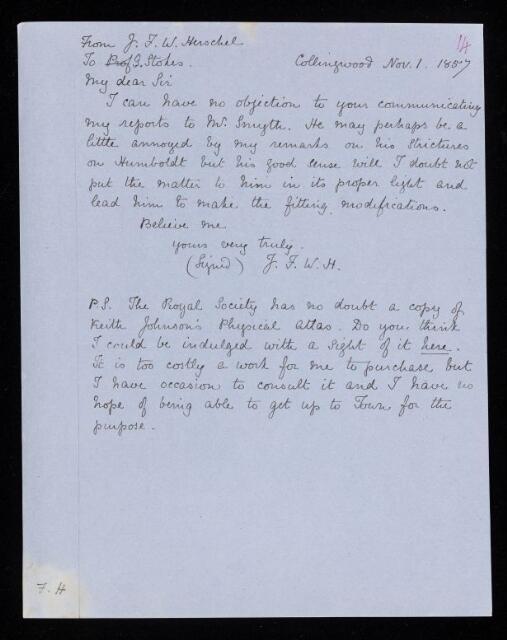 14
From J. F. W. Herschel
To Prof G. Stokes. Collingwood Nov. 1. 1857
My dear Sir
I can have no objection to your communicating
my reports to Mr. Smyth. He may perhaps be a
little annoyed by my remarks on his strictures
on Humboldt but his good sense will I doubt not
put the matter to him in its proper light and
lead him to make the fitting modifications.
Believe me
yours very truly.
(Signed) J. F. W. H.
P.S. The Royal Society has no doubt a copy of
Keith Johnson's Physical Atlas. Do you think
I could be indulged with a sight of it here.
It is too costly a work for me to purchase but
I have occasion to consult it and I have no
hope of being able to get up to Town for the
purpose.
F. H